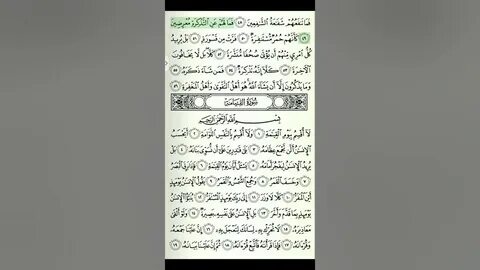 فَمَا تَنفَعُهُمْ شَفَٰعَةُ ٱلشَّٰفِعِينَ ٤٨ فَمَا لَهُمْ عَنِ ٱلتَّذْكِرَةِ مُعْرِضِينَ
٤٩ كَأَنَّهُمْ حُمُرٌ مُّسْتَنفِرَةٌ ٥٠ فَرَّتْ مِن قَسْوَرَةٍۭ ٥١ بَلْ يُرِيدُ
كُلُّ ٱمْرِئٍ مِّنْهُمْ أَن يُؤْتَىٰ صُحُفًا مُّنَشَّرَةً ٥٢ كَلَّا بَل لَّا يَخَافُونَ
ٱلْأَخِرَةَ ٥٣ كَلَّآ إِنَّهُۥ تَذْكِرَةٌ ٥٤ فَمَن شَآءَ ذَكَرَهُۥ ٥٥
وَمَا يَذْكُرُونَ إِلَّآ أَن يَشَآءَ ٱللَّهُ هُوَ أَهْلُ ٱلتَّقْوَىٰ وَأَهْلُ ٱلْمَغْفِرَةِ ٥٦
سُورَةُ ٱلْقِيَامَةِ
بِسْمِ ٱللَّهِ ٱلرَّحْمَٰنِ ٱلرَّحِيمِ
لَآ أُقْسِمُ بِيَوْمِ ٱلْقِيَٰمَةِ ١ وَلَآ أُقْسِمُ بِٱلنَّفْسِ ٱللَّوَّامَةِ ٢ أَيَحْسَبُ
ٱلْإِنسَٰنُ أَلَّن نَّجْمَعَ عِظَامَهُۥ ٣ بَلَىٰ قَٰدِرِينَ عَلَىٰٓ أَن نُّسَوِّىَ بَنَانَهُۥ ٤ بَلْ
يُرِيدُ ٱلْإِنسَٰنُ لِيَفْجُرَ أَمَامَهُۥ ٥ يَسْـَٔلُ أَيَّانَ يَوْمُ ٱلْقِيَٰمَةِ ٦ فَإِذَا بَرِقَ ٱلْبَصَرُ
٧ وَخَسَفَ ٱلْقَمَرُ ٨ وَجُمِعَ ٱلشَّمْسُ وَٱلْقَمَرُ ٩ يَقُولُ ٱلْإِنسَٰنُ يَوْمَئِذٍ
أَيْنَ ٱلْمَفَرُّ ١٠ كَلَّا لَا وَزَرَ ١١ إِلَىٰ رَبِّكَ يَوْمَئِذٍ ٱلْمُسْتَقَرُّ ١٢ يُنَبَّؤُا۟ ٱلْإِنسَٰنُ
يَوْمَئِذٍۭ بِمَا قَدَّمَ وَأَخَّرَ ١٣ بَلِ ٱلْإِنسَٰنُ عَلَىٰ نَفْسِهِۦ بَصِيرَةٌ ١٤ وَلَوْ أَلْقَىٰ
مَعَاذِيرَهُۥ ١٥ لَا تُحَرِّكْ بِهِۦ لِسَانَكَ لِتَعْجَلَ بِهِۦٓ ١٦ إِنَّ عَلَيْنَا جَمْعَهُۥ
وَقُرْءَانَهُۥ ١٧ فَإِذَا قَرَأْنَٰهُ فَٱتَّبِعْ قُرْءَانَهُۥ ١٨ ثُمَّ إِنَّ عَلَيْنَا بَيَانَهُۥ ١٩